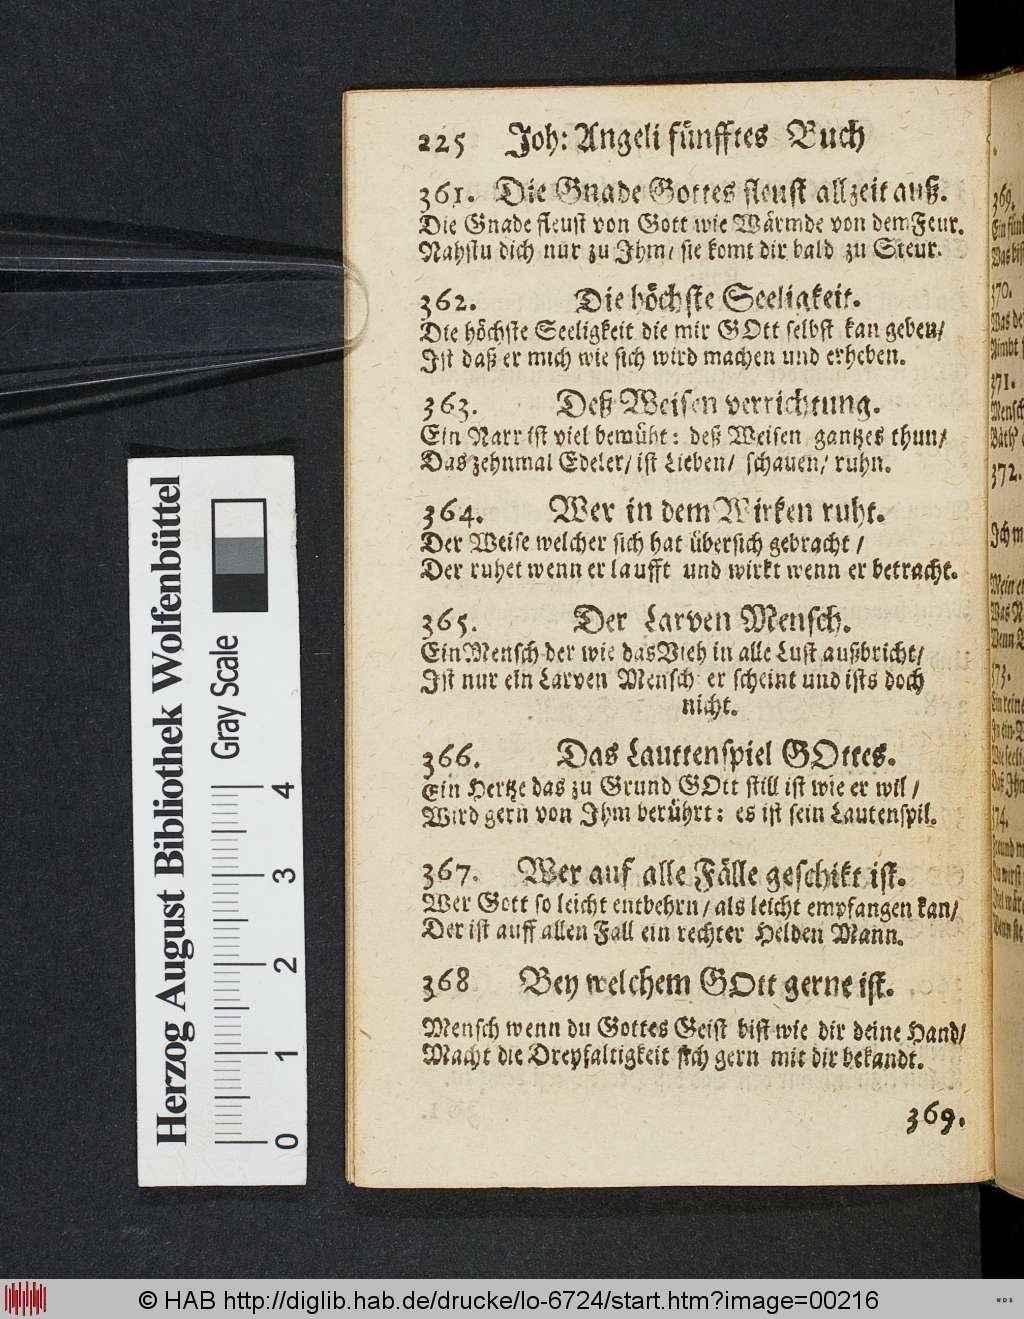 225 Joh: Angeli fünfftes Buch
361. Die Gnade Gottes fleust allzeit auß.
Die Gnade fleust von Gott wie Wärmde von dem Feur.
Nahstu dich nur zu Ihm/ sie komt dir bald zu Steur.
362. Die höchste Seeligkeit.
Die höchste Seeligkeit die mir GOtt selbst kan geben/
Ist daß er mich wie sich wird machen und erheben.
363. Deß Weisen verrichtung.
Ein Narr ist viel bemüht: deß Weisen gantzes thun/
Das zehnmal Edeler/ ist Lieben/ schauen/ ruhn.
364. Wer in dem Wirken ruht.
Der Weise welcher sich hat übersich gebracht /
Der ruhet wenn er laufft und wirkt wenn er betracht.
365. Der Larven Mensch.
Ein Mensch der wie das Vieh in alle Lust außbricht/
Ist nur ein Larven Mensch er scheint und ists doch
nicht.
366. Das Lauttenspiel GOttes.
Ein Hertze das zu Grund GOtt still ist wie er wil /
Wird gern von Ihm berührt: es ist sein Lautenspil.
367. Wer auf alle Fälle geschikt ist.
Wer Gott so leicht entbehrn / als leicht empfangen kan/
Der ist auff allen Fall ein rechter Helden Mann.
368 Bey welchem GOtt gerne ist.
Mensch wenn du Gottes Geist bist wie dir deine Hand/
Macht die Dreyfaltigkeit sich gern mit dir bekandt.
369.
369.
370.
371.
Mensch
372.
Ich
Herzog August Bibliothek Wolfenbüttel
Gray Scale
0 1 2 3 4
© HAB http://diglib.hab.de/drucke/lo-6724/start.htm?image=00216